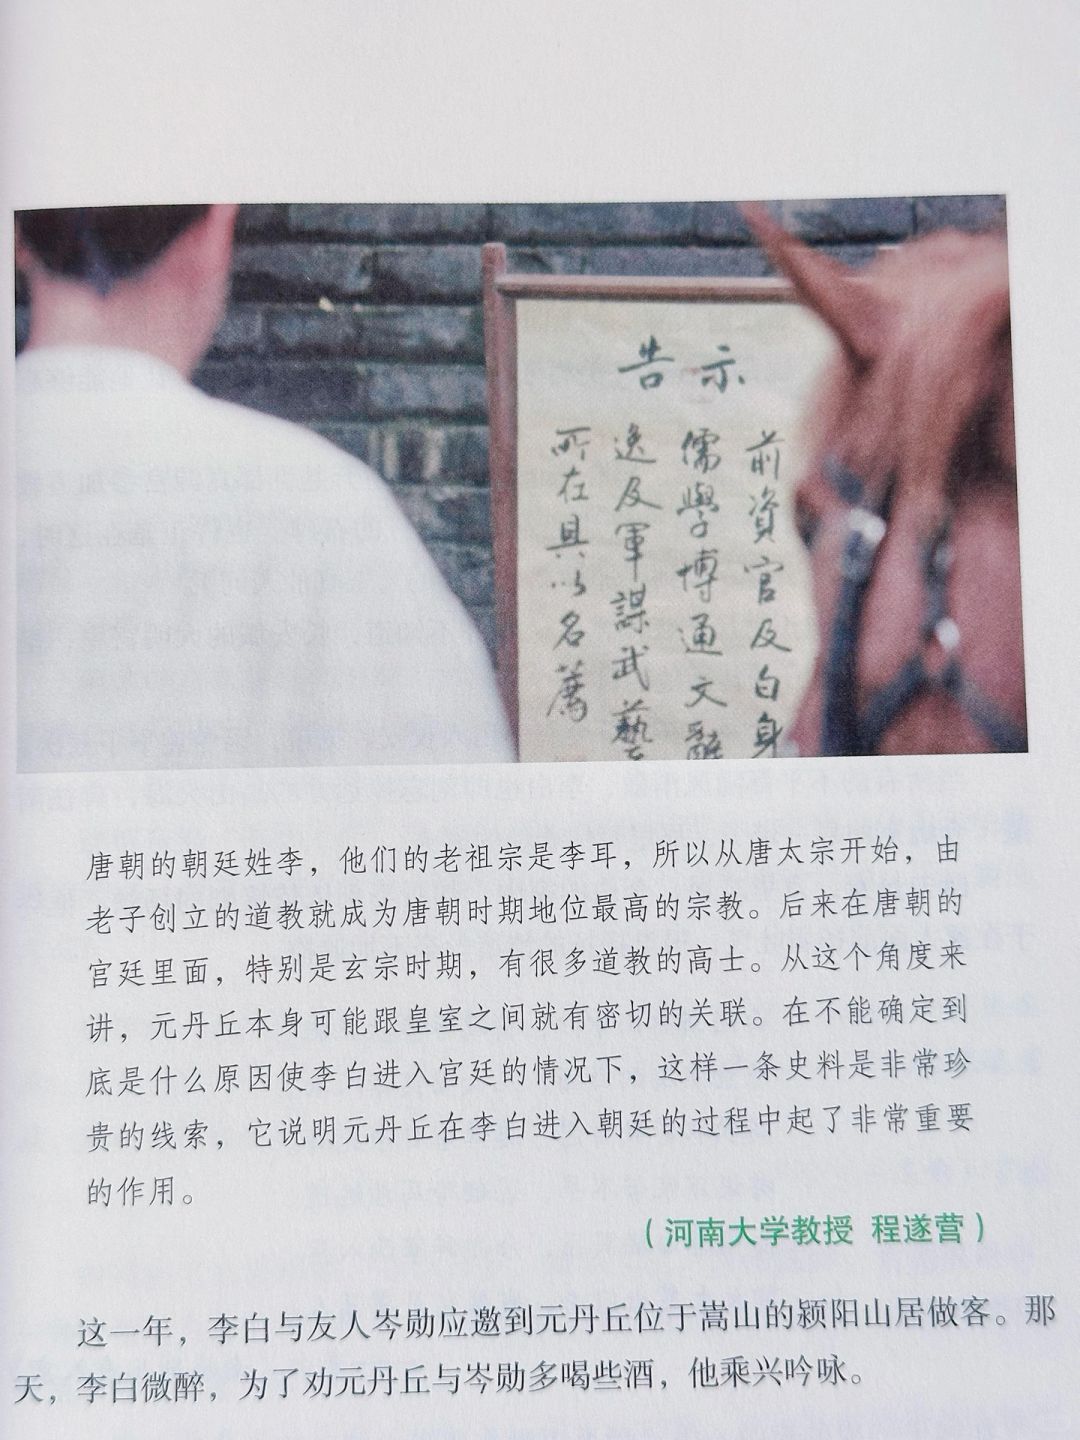 告示
前資官及白身
儒學博通文辭
逸及軍謀武藝
所在具以名薦
唐朝的朝廷姓李，他们的老祖宗是李耳，所以从唐太宗开始，由
老子创立的道教就成为唐朝时期地位最高的宗教。后来在唐朝的
宫廷里面，特别是玄宗时期，有很多道教的高士。从这个角度来
讲，元丹丘本身可能跟皇室之间就有密切的关联。在不能确定到
底是什么原因使李白进入宫廷的情况下，这样一条史料是非常珍
贵的线索，它说明元丹丘在李白进入朝廷的过程中起了非常重要
的作用。
（河南大学教授 程遂营）
这一年，李白与友人岑勋应邀到元丹丘位于嵩山的颍阳山居做客。那
天，李白微醉，为了劝元丹丘与岑勋多喝些酒，他乘兴吟咏。